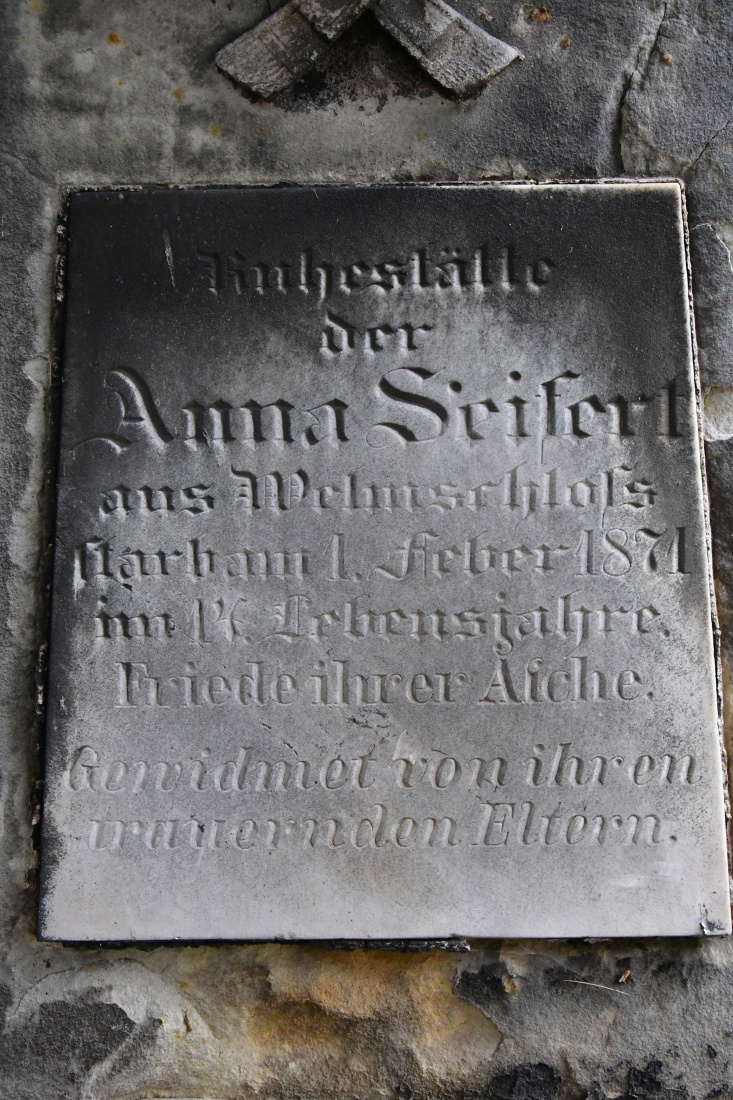 Ruhestätte
der
Anna Seifert
aus Welmschloſs
ſtarb am 1. Feber 1871
im Lebensjahre.
Friede ihrer Aſche.
Gewidmet von ihren
trauernden Eltern.